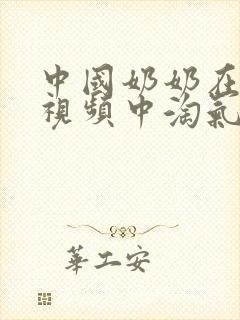 中國奶奶在
視頻中淘氣
華工安